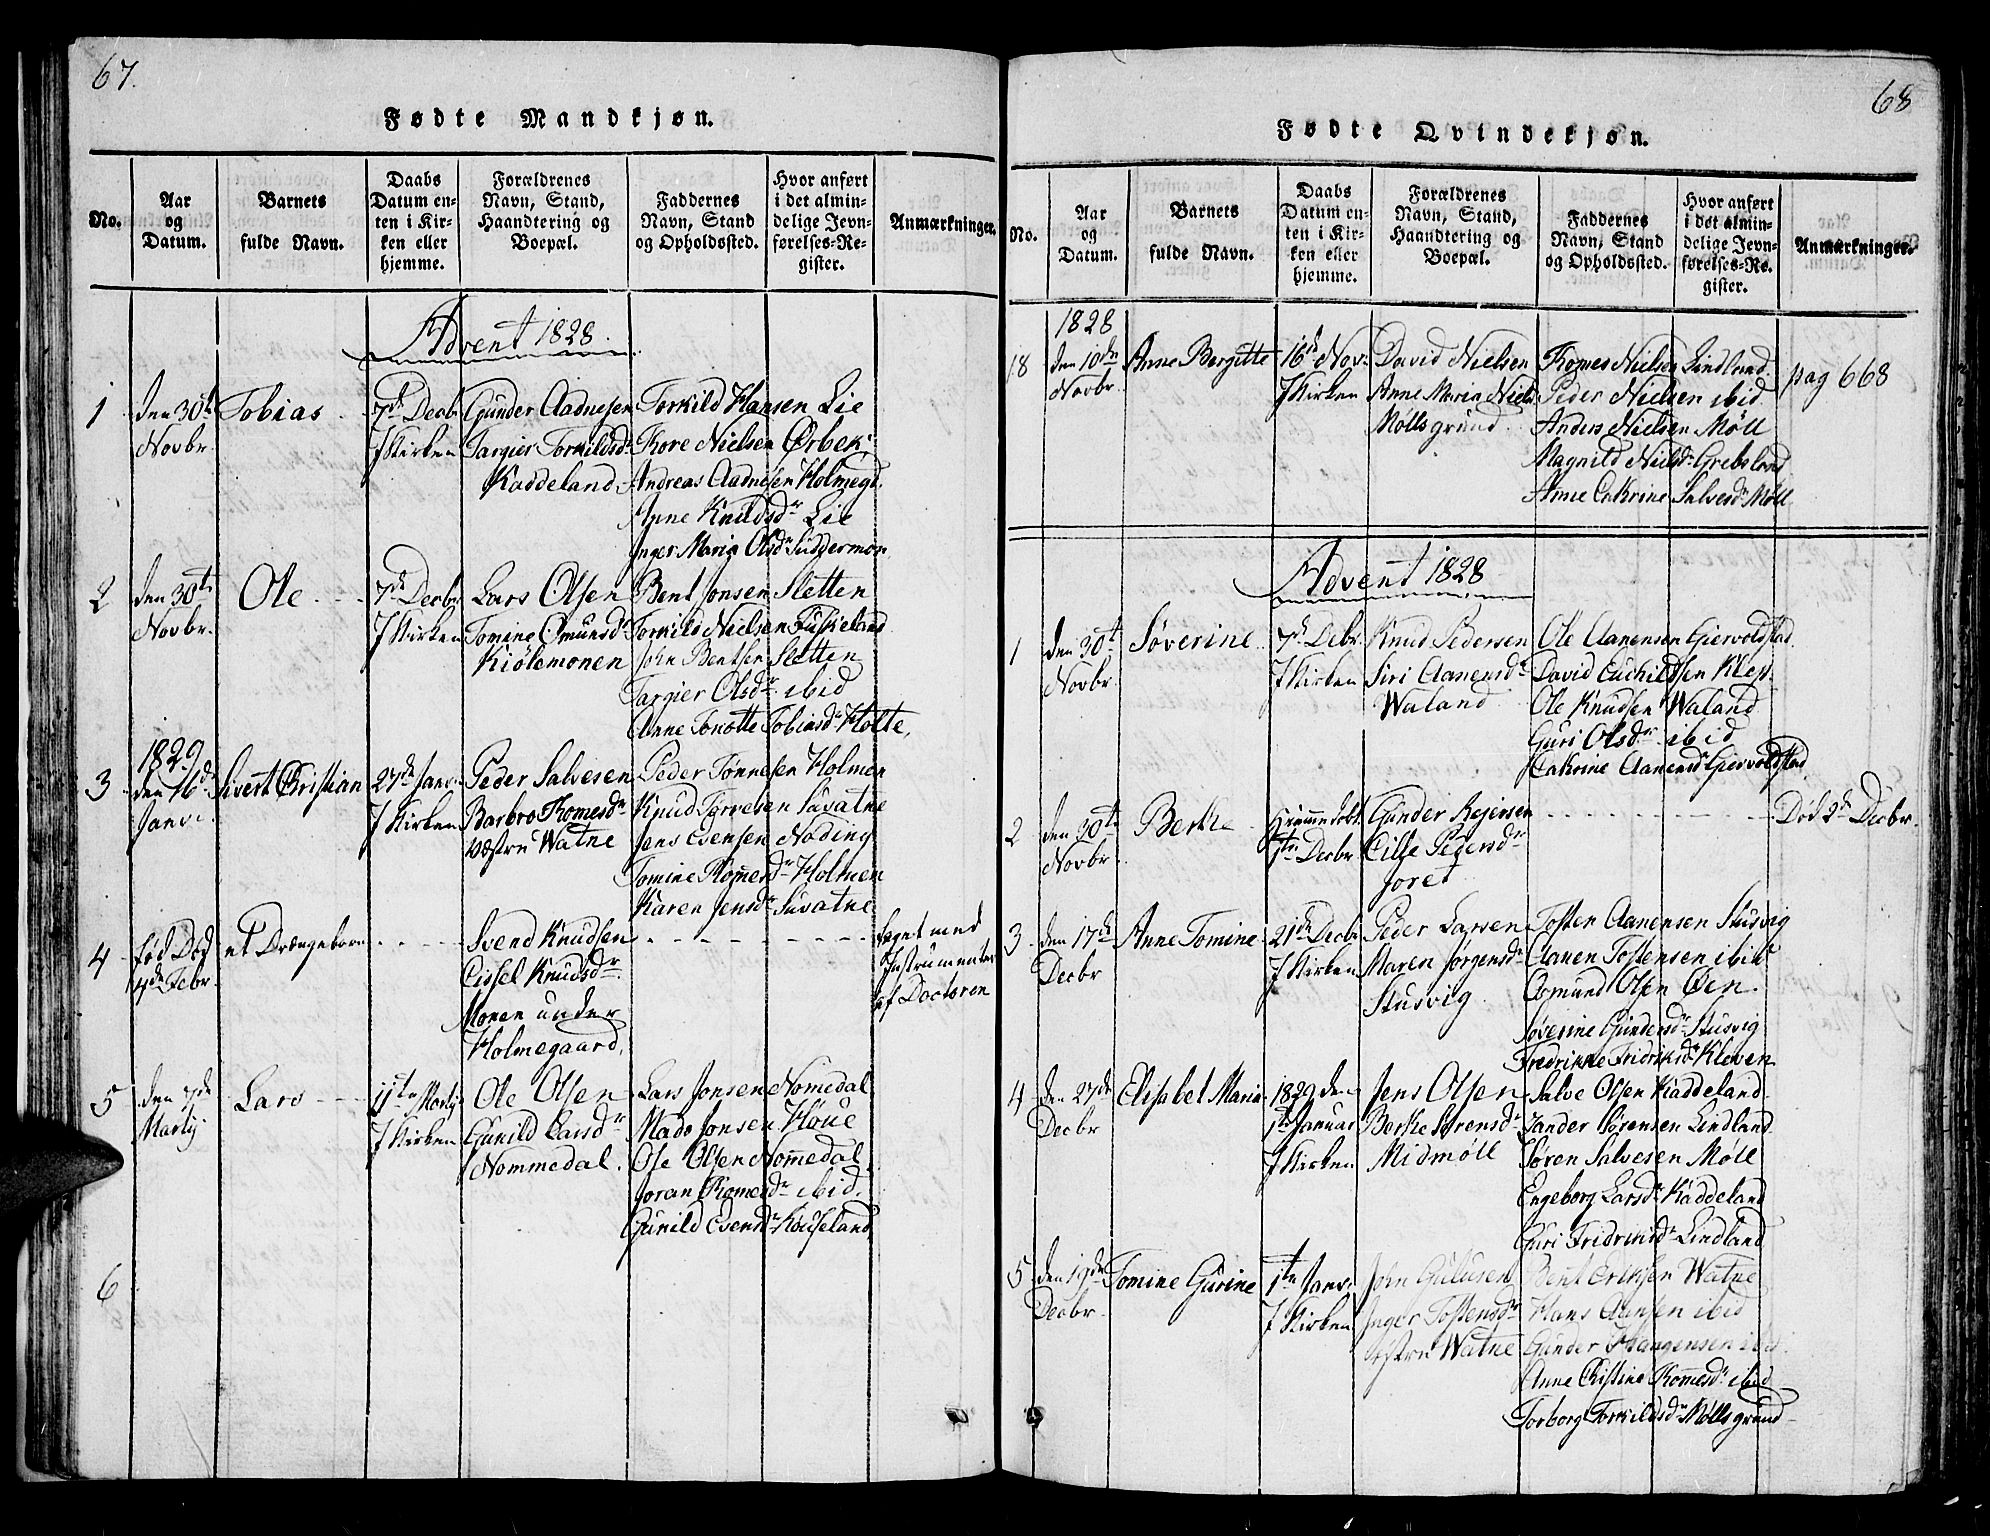 67.
Fødte Mandkjøn.
No.
Aar
og
Datum.
Barnets
fulde Navn.
Daabs
Datum en-
ten i Kir-
ken eller
hjemme.
Forældrenes
Navn, Stand,
Haandtering og
Boepæl.
Faddernes
Navn, Stand
og Opholdssted.
Hvor anført
i det almin-
delige Jevn-
førelses-Re-
gister.
Anmærkninger.
Advent 1828.
1
den 30te
Novbr.
Tobias
7de Decbr
I Kirken
Gunder Aadnesen
Targier Torkildsdr
Kaddeland
Torkild Hansen Lie
Tore Nielsen Ørbek
Andreas Aadnesen Holmegd.
Anne Knudsdr Lie
Inger Maria Olsdr
2
den 30te
Novbr.
Ole
7de Decbr
I Kirken
Lars Olsen
Tomine Omunsdr
Kiølemonen
Bent Jonsen Sletten
Torkild Nielsen Fuskeland
John Bentsen Sletten
Targier Olsdr ibid
Anne Tonette Tobiasdr Holte.
3
1829
den 16de
Janv.
Sivert Christian
27de Janv.
I Kirken
Peder Salvesen
Barbro Tomesdr
østru Watne
Peder Tønnesen Holmen
Knud Tørresen Suvatne
Jens Esensen Noding
Tomine Tomesdr Holmen
Karen Jensdr Suvatne
4
fød Død
4de Febr.
et Drængebarn
Svend Knudsen
Cissel Knudsdr
Monen under
Holmegaard.
taget med
Instrumenter
af Doctoren
5
den 7de
Martij.
Lars
11te Martij
I Kirken
Ole Olsen
Gunild Larsdr
Nommedal.
Lars Jonsen Nomedal
Mads Jonsen Houe
Ole Olsen Nomedal
Joran Tomesdr ibid.
Gunild Esensdr Køuseland
6
68
Fødte Qvindekjøn.
No.
Aar
og
Datum.
Barnets
fulde Navn.
Daabs
Datum en-
ten i Kir-
ken eller
hjemme.
Forældrenes
Navn, Stand,
Haandtering og
Boepæl.
Faddernes
Navn, Stand
og Opholdssted.
Hvor anført
i det almin-
delige Jevn-
førelses-Re-
gister.
Anmærkninger.
18
1828
den 10de
Novbr.
Anne Bergitte
16de Nov.
I Kirken
David Nielsen
Anne Maria Niels
Mølls grund.
Tomes Nielsen Lindland.
Peder Nielsen ibid
Anders Nielsen Møll
Magnild Nielsdr Grebsland
Anne Catrine Salvesdr Møll
pag 668
Advent 1828
1
den 30te
Novbr.
Søverine
7de Debr.
I Kirken
Knud Pedersen
Siri Aanensdr
Waland
Ole Aanensen Giervoldstad.
David Euchildsen Klep.
Ole Knudsen Waland
Guri Olsdr ibid
Catrine Aanensdr Giervoldstad
2
den 30te
Novbr.
Berthe
Hiemme døbt
1te Decbr
Gunder Reiersen
Cille Pedersdr
Foret
Død 2de Decbr.
3
den 17de
Decbr
Anne Tomine
21de Decbr
I Kirken
Peder Larsen
Maren Jørgensdr
Stusvig
Tosten Aanensen Stusvig
Aanen Tostensen ibid
Osmund Olsen Øen.
Søverine Gundersdr Stusvig
Fredrikke Fridriksdr Kleven
4
den 27de
Decbr
Elisabet Maria
1829 den
1te Januar
I Kirken
Jens Olsen
Berthe Sørensdr
Midmøll
Salve Olsen Kaddeland
Zander Sørensen Lindland
Søren Salvesen Møll
Engeborg Larsdr Kaddeland
Guri Fridriksdr Lindland
5
den 19de
Decbr.
Tomine Gurine
1te Janv.
I Kirken
John Gulusen
Inger Tostensdr
østru Watne
Bent Eriksen Watne
Hans Aansen ibid
Gunder Haagensen ibid
Anne Cristine Tomesdr ibid
Torborg Torkildsdr Mølls grund